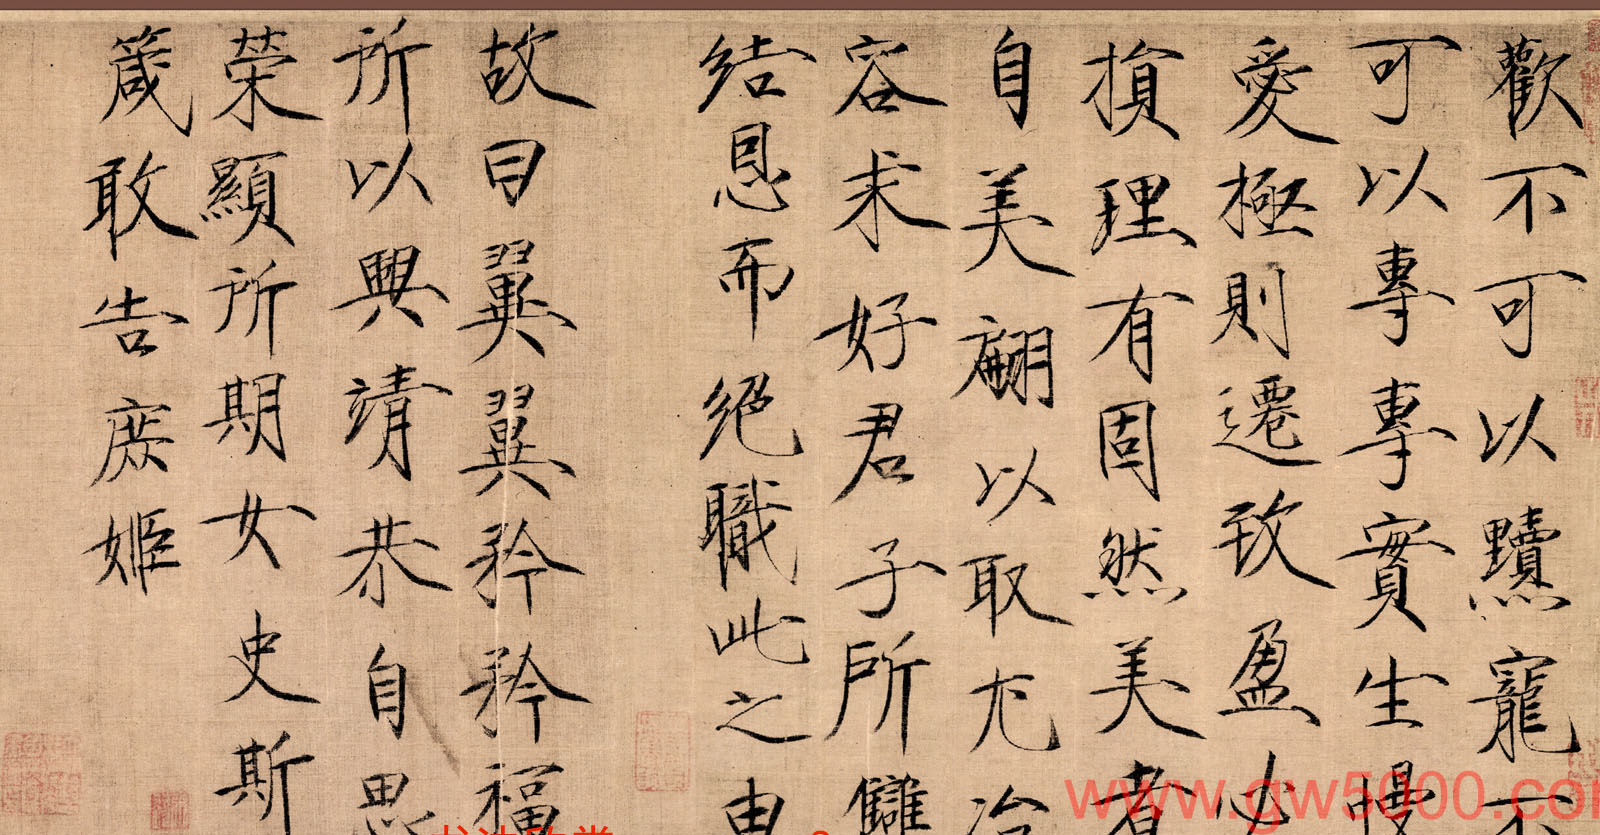 歡不可以黷寵不
可以專專實生慢
愛極則遷致盈必
損理有固然美者
自美翩以取尤冶
容求好君子所讎
結恩而絕職此之由
故曰翼翼矜矜福
所以興靖恭自思
榮顯所期女史斯
箴敢告庶姬
www.gw5000.com